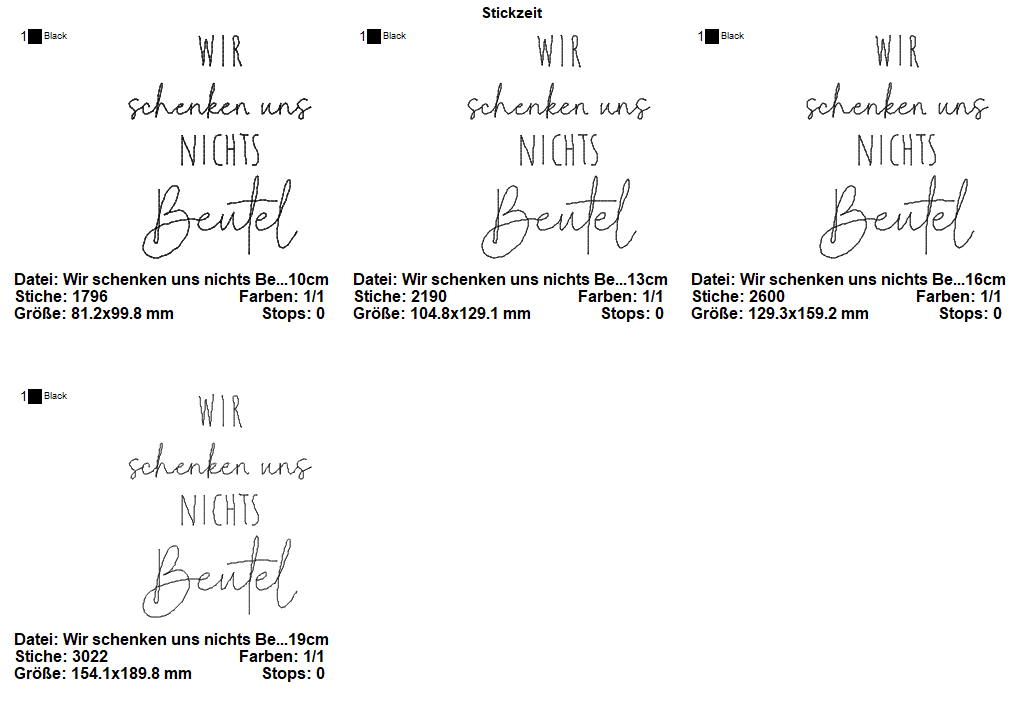 Stickzeit
1 Black
WIR
schenken uns
NICHTS
Beutel
Datei: Wir schenken uns nichts Be...10cm
Stiche: 1796 Farben: 1/1
Größe: 81.2x99.8 mm Stops: 0
1 Black
WIR
schenken uns
NICHTS
Beutel
Datei: Wir schenken uns nichts Be...13cm
Stiche: 2190 Farben: 1/1
Größe: 104.8x129.1 mm Stops: 0
1 Black
WIR
schenken uns
NICHTS
Beutel
Datei: Wir schenken uns nichts Be...16cm
Stiche: 2600 Farben: 1/1
Größe: 129.3x159.2 mm Stops: 0
1 Black
WIR
schenken uns
NICHTS
Beutel
Datei: Wir schenken uns nichts Be...19cm
Stiche: 3022 Farben: 1/1
Größe: 154.1x189.8 mm Stops: 0